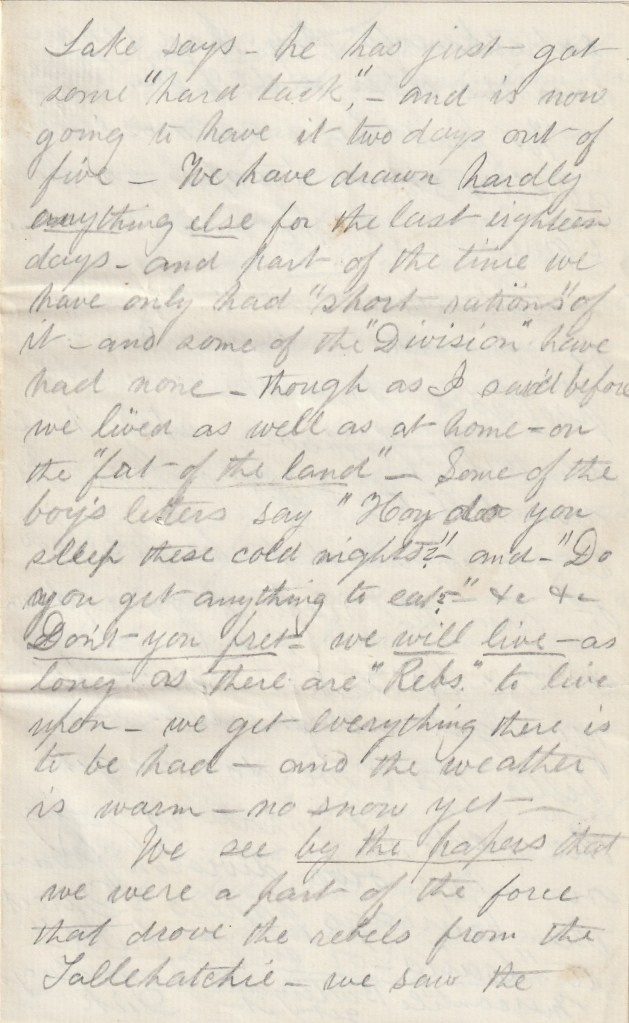 Lake says - he has just got
some "hard tack", - and is now
going to have it two days out of
five - We have drawn hardly
anything else for the last eighteen
days - and part of the time we
have only had "short rations" of
it - and some of the "Division" have
had none - though as I said before
we lived as well as at home - on
the "fat of the land" - Some of the
boy's letters say "How do you
sleep these cold nights?" - and - "Do
you get anything to eat?" - &c &c
Don't you fret - we will live - as
long as there are "Rebs." to live
upon - we get everything there is
to be had - and the weather
is warm - no snow yet -
We see by the papers that
we were a part of the force
that drove the rebels from the
Tallehatchie - we saw the